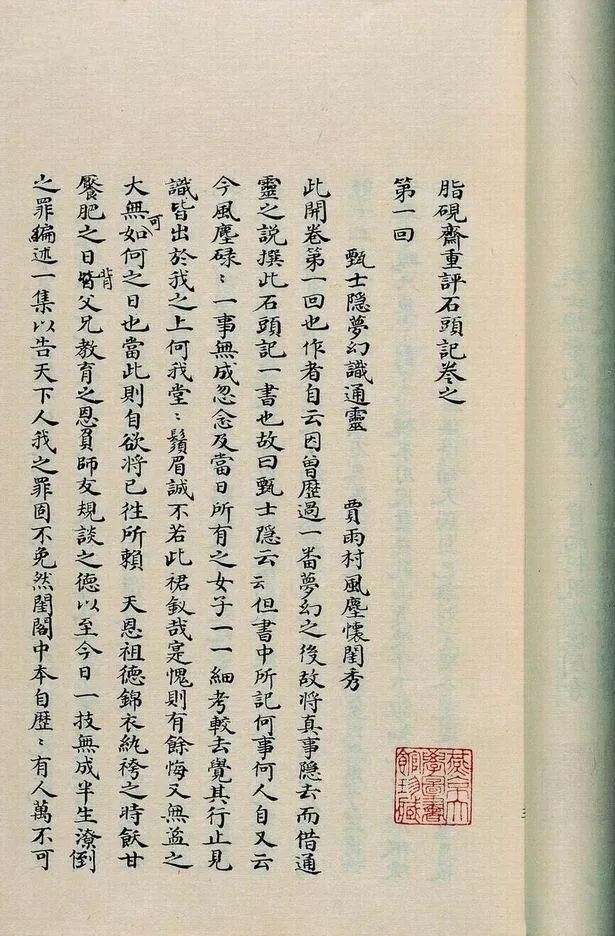 脂硯齋重評石頭記卷之
第一回
甄士隐夢幻識通靈　賈雨村風塵懷閨秀
此開卷第一回也作者自云因曾歷過一番夢幻之後故將真事隐去而借通
靈之說撰此石頭記一書也故曰甄士隐云云但書中所記何事何人自又云
今風塵碌〻一事無成忽念及當日所有之女子一一細考較去覺其行止見
識皆出於我之上何我堂〻鬚眉誠不若此裙釵哉寔愧則有餘悔又無益之
大無可如何之日也當此則自欲將已往所賴　天恩祖德錦衣紈袴之時飫甘
饜肥之日背父兄教育之恩負師友規談之德以至今日一技無成半生潦倒
之罪编述一集以告天下人我之罪固不免然閨閣中本自歷〻有人萬不可
燕京大學圖書館珍藏